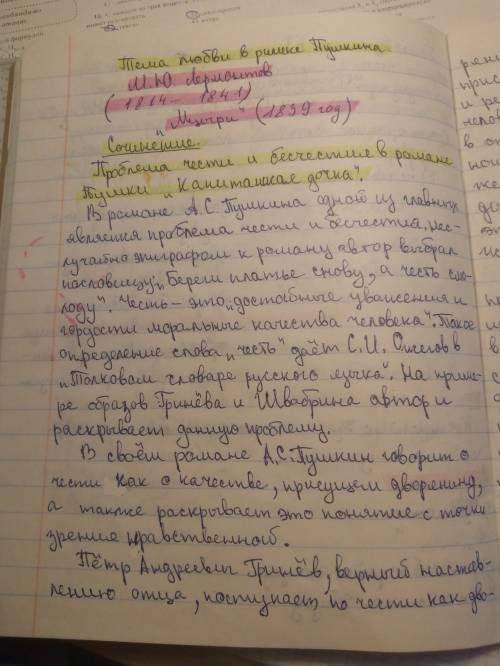 Тема любви в рилике Пушкина
М.Ю. Лермонтов
(1814 – 1841)
"Мцыри" (1839 год)
Сочинение.
Проблема чести и бесчестия в романе
Пушки "Капитанская дочка".
В романе А.С. Пушкина одной из главных
является проблема чести и бесчестия, нес-
лучайно эпиграфом к роману автор выбрал
пословицу: "Береги платье снову, а честь смо-
лоду". Честь – это "достойные уважения и
гордости моральные качества человека". Такое
определение слова "честь" даёт С.И. Ожегов в
"Толковом словаре русского языка". На приме-
ре образов Гринёва и Швабрина автор и
раскрывает данную проблему.
В своём романе А.С. Пушкин говорит о
чести как о качестве, присущем дворенину,
а также раскрывает это понятие с точки
зрения нравственной.
Пётр Андреевич Гринёв, верный настав-
лению отца, поступает по чести как дво-